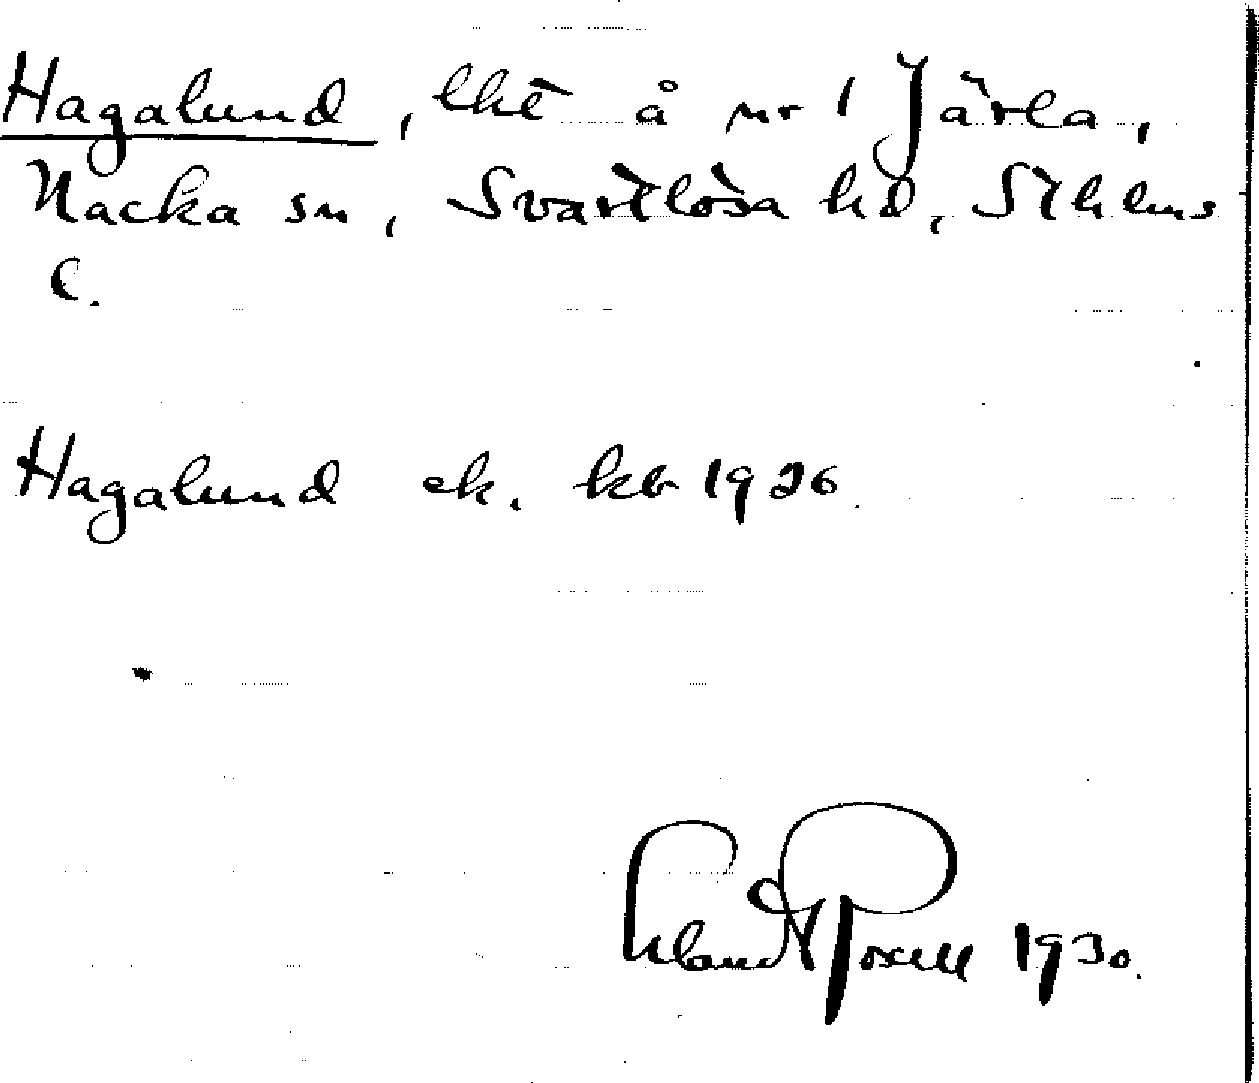 Hagalund, lht å nr 1 Järla,
Nacka sn, Svartlösa hd, Sthlms
l.
Hagalund ek. kb 1926
Erland Rosell 1930.